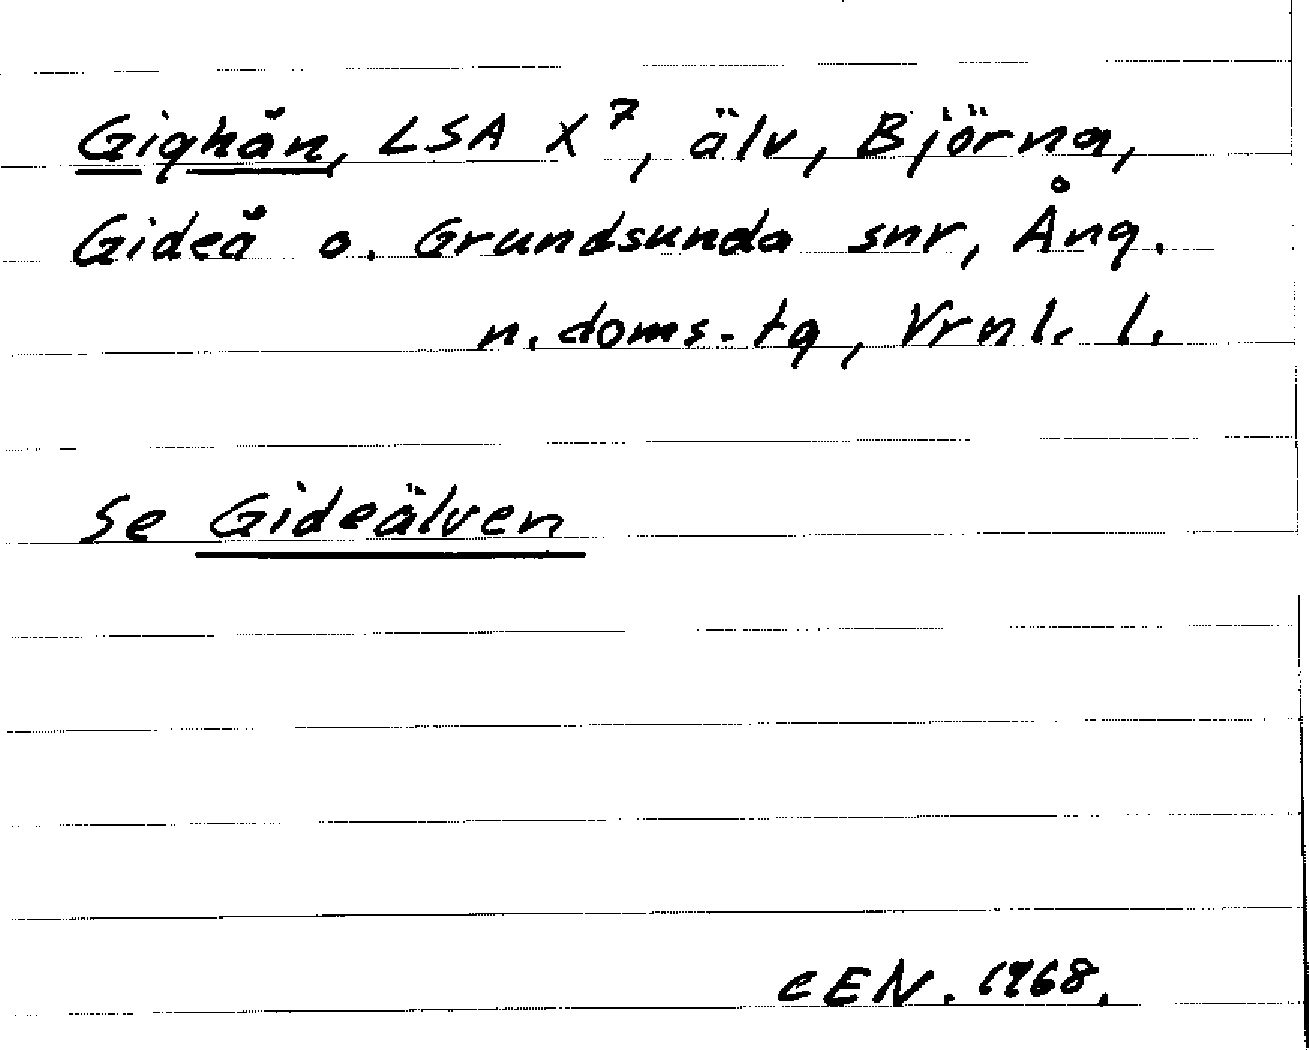 Gighån, LSA X⁷, älv, Björna,
Gideå o. Grundsunda snr, Ång.
n. doms.-tg, Vrnl. l.
Se Gideälven
CEN. 1968.